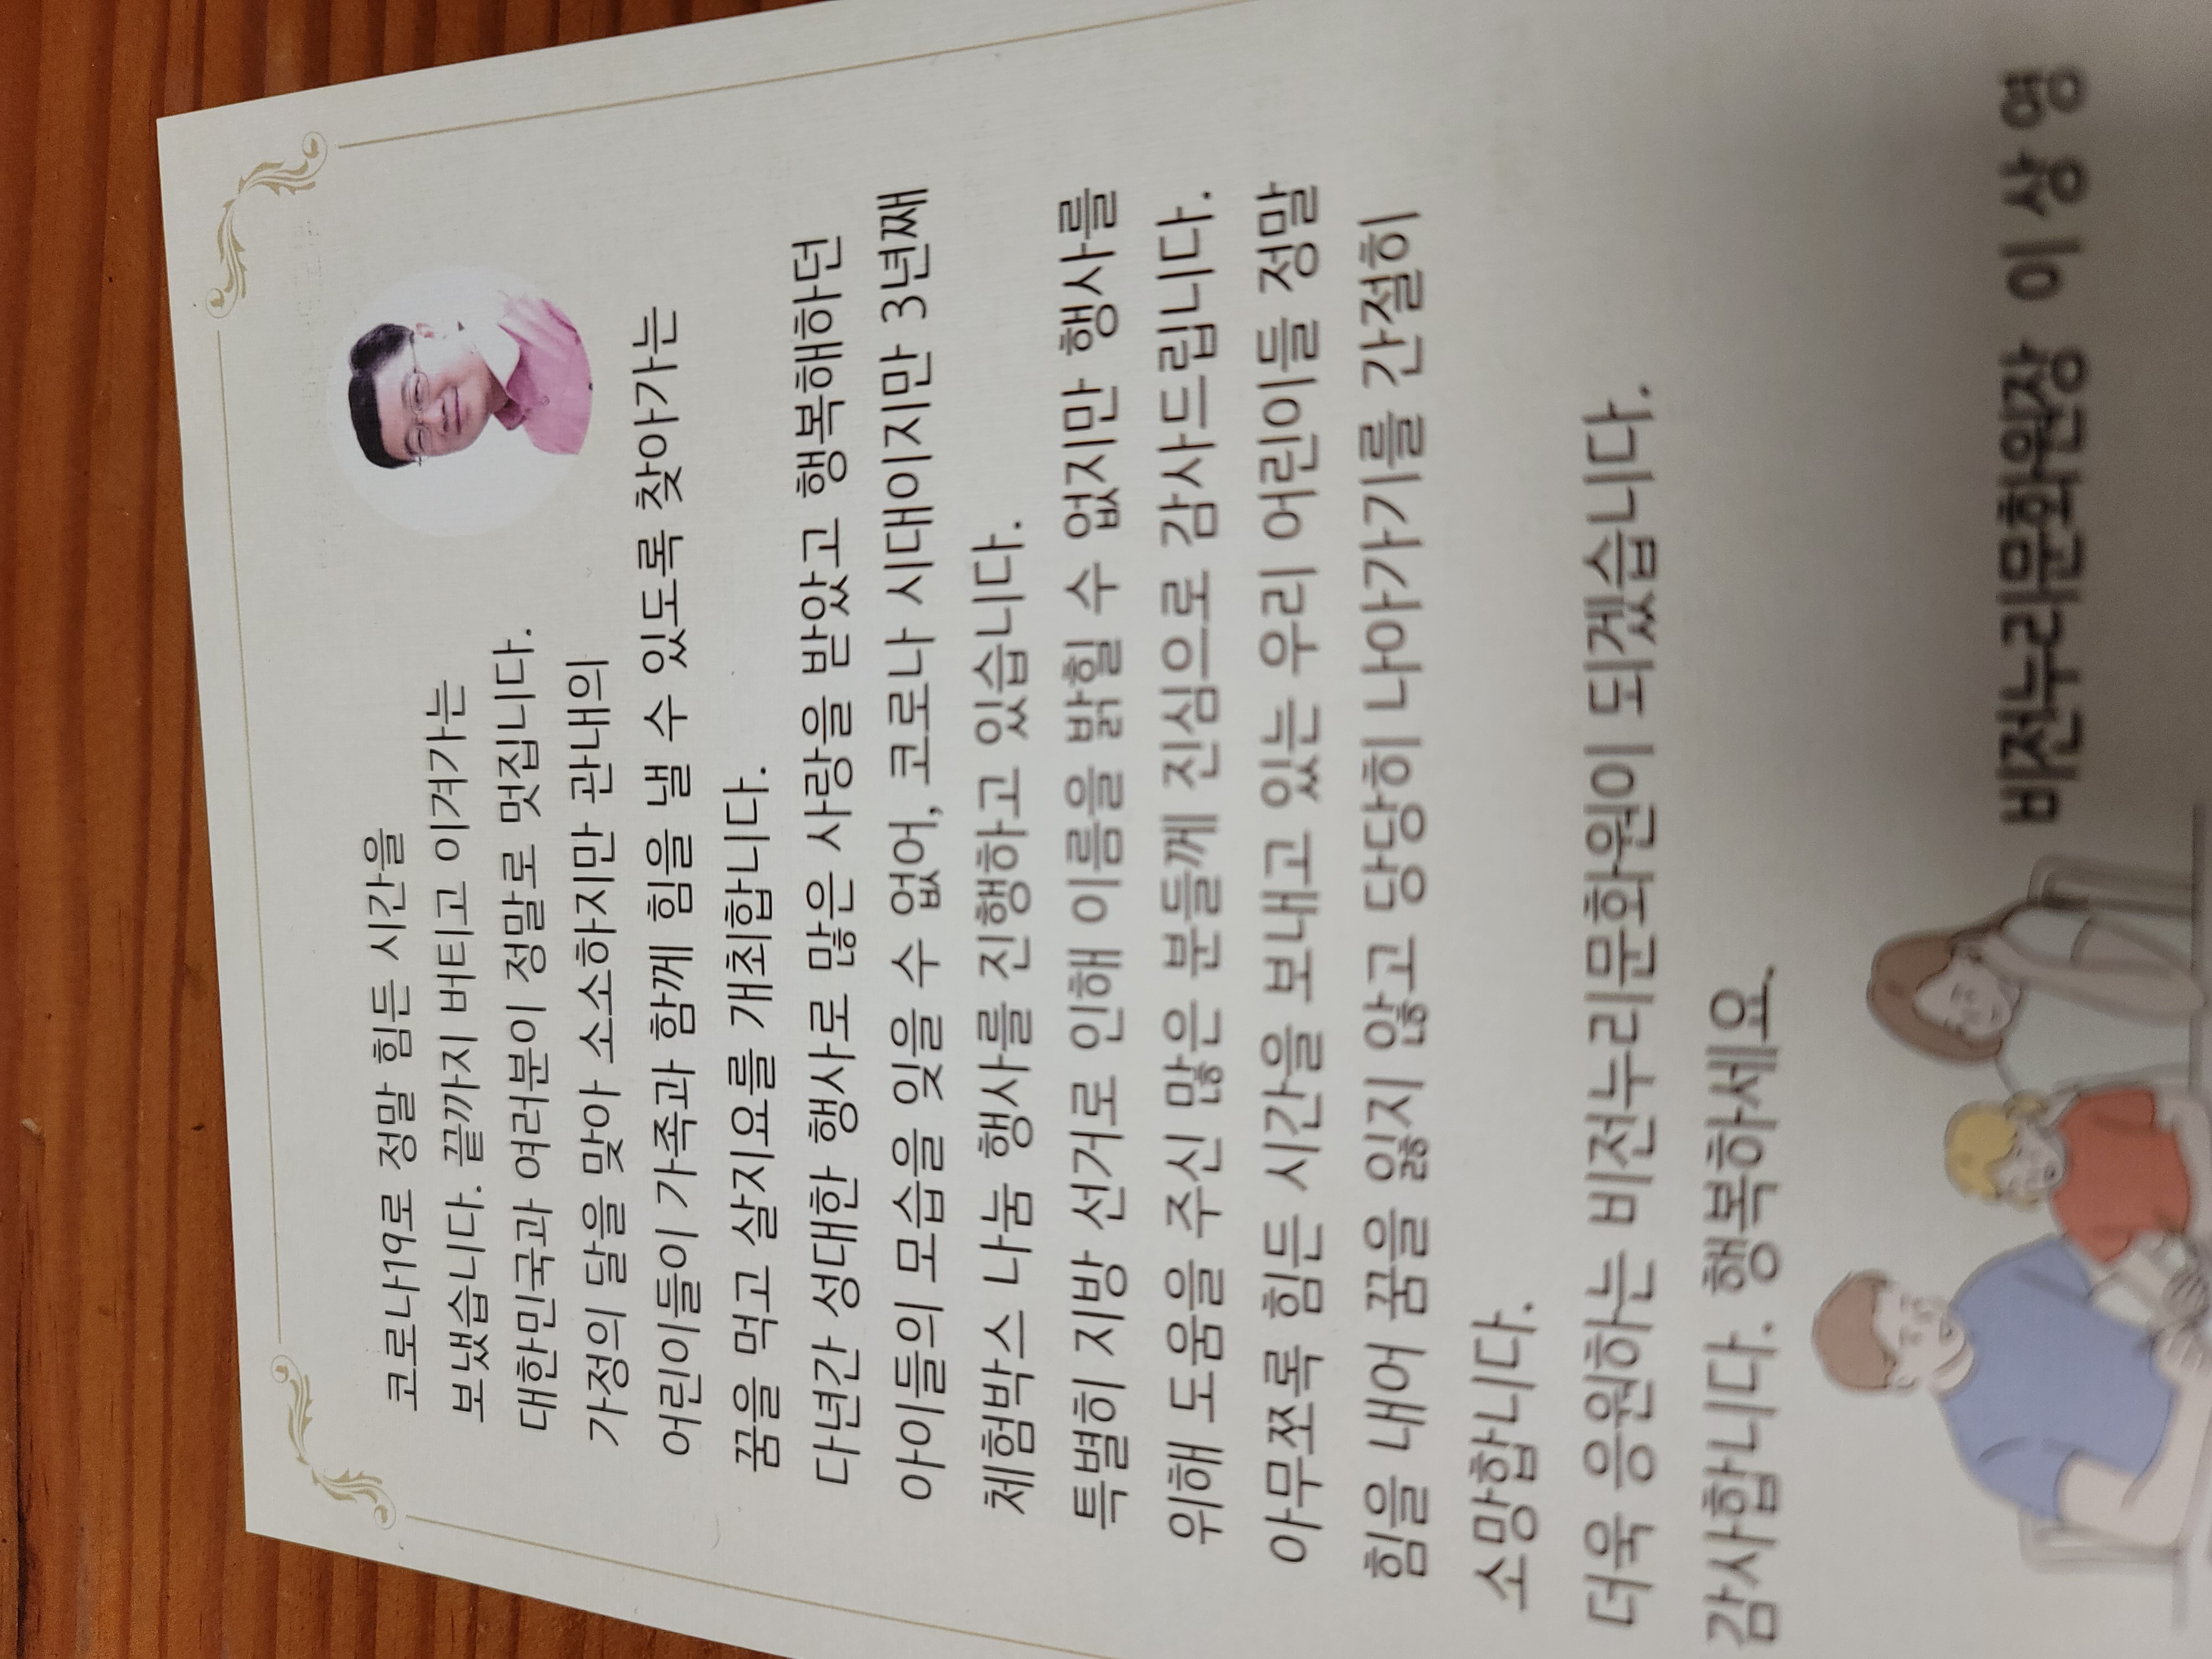 코로나19로 정말 힘든 시간을
보냈습니다. 끝까지 버티고 이겨가는
대한민국과 여러분이 정말로 멋집니다.
가정의 달을 맞아 소소하지만 관내의
어린이들이 가족과 함께 힘을 낼 수 있도록 찾아가는
꿈을 먹고 살지요를 개최합니다.
다년간 성대한 행사로 많은 사랑을 받았고 행복해하던
아이들의 모습을 잊을 수 없어, 코로나 시대이지만 3년째
체험박스 나눔 행사를 진행하고 있습니다.
특별히 지방 선거로 인해 이름을 밝힐 수 없지만 행사를
위해 도움을 주신 많은 분들께 진심으로 감사드립니다.
아무쪼록 힘든 시간을 보내고 있는 우리 어린이들 정말
힘을 내어 꿈을 잃지 않고 당당히 나아가기를 간절히
소망합니다.
더욱 응원하는 비전누리문화원이 되겠습니다.
감사합니다. 행복하세요.
비전누리문화원장 이 상 영